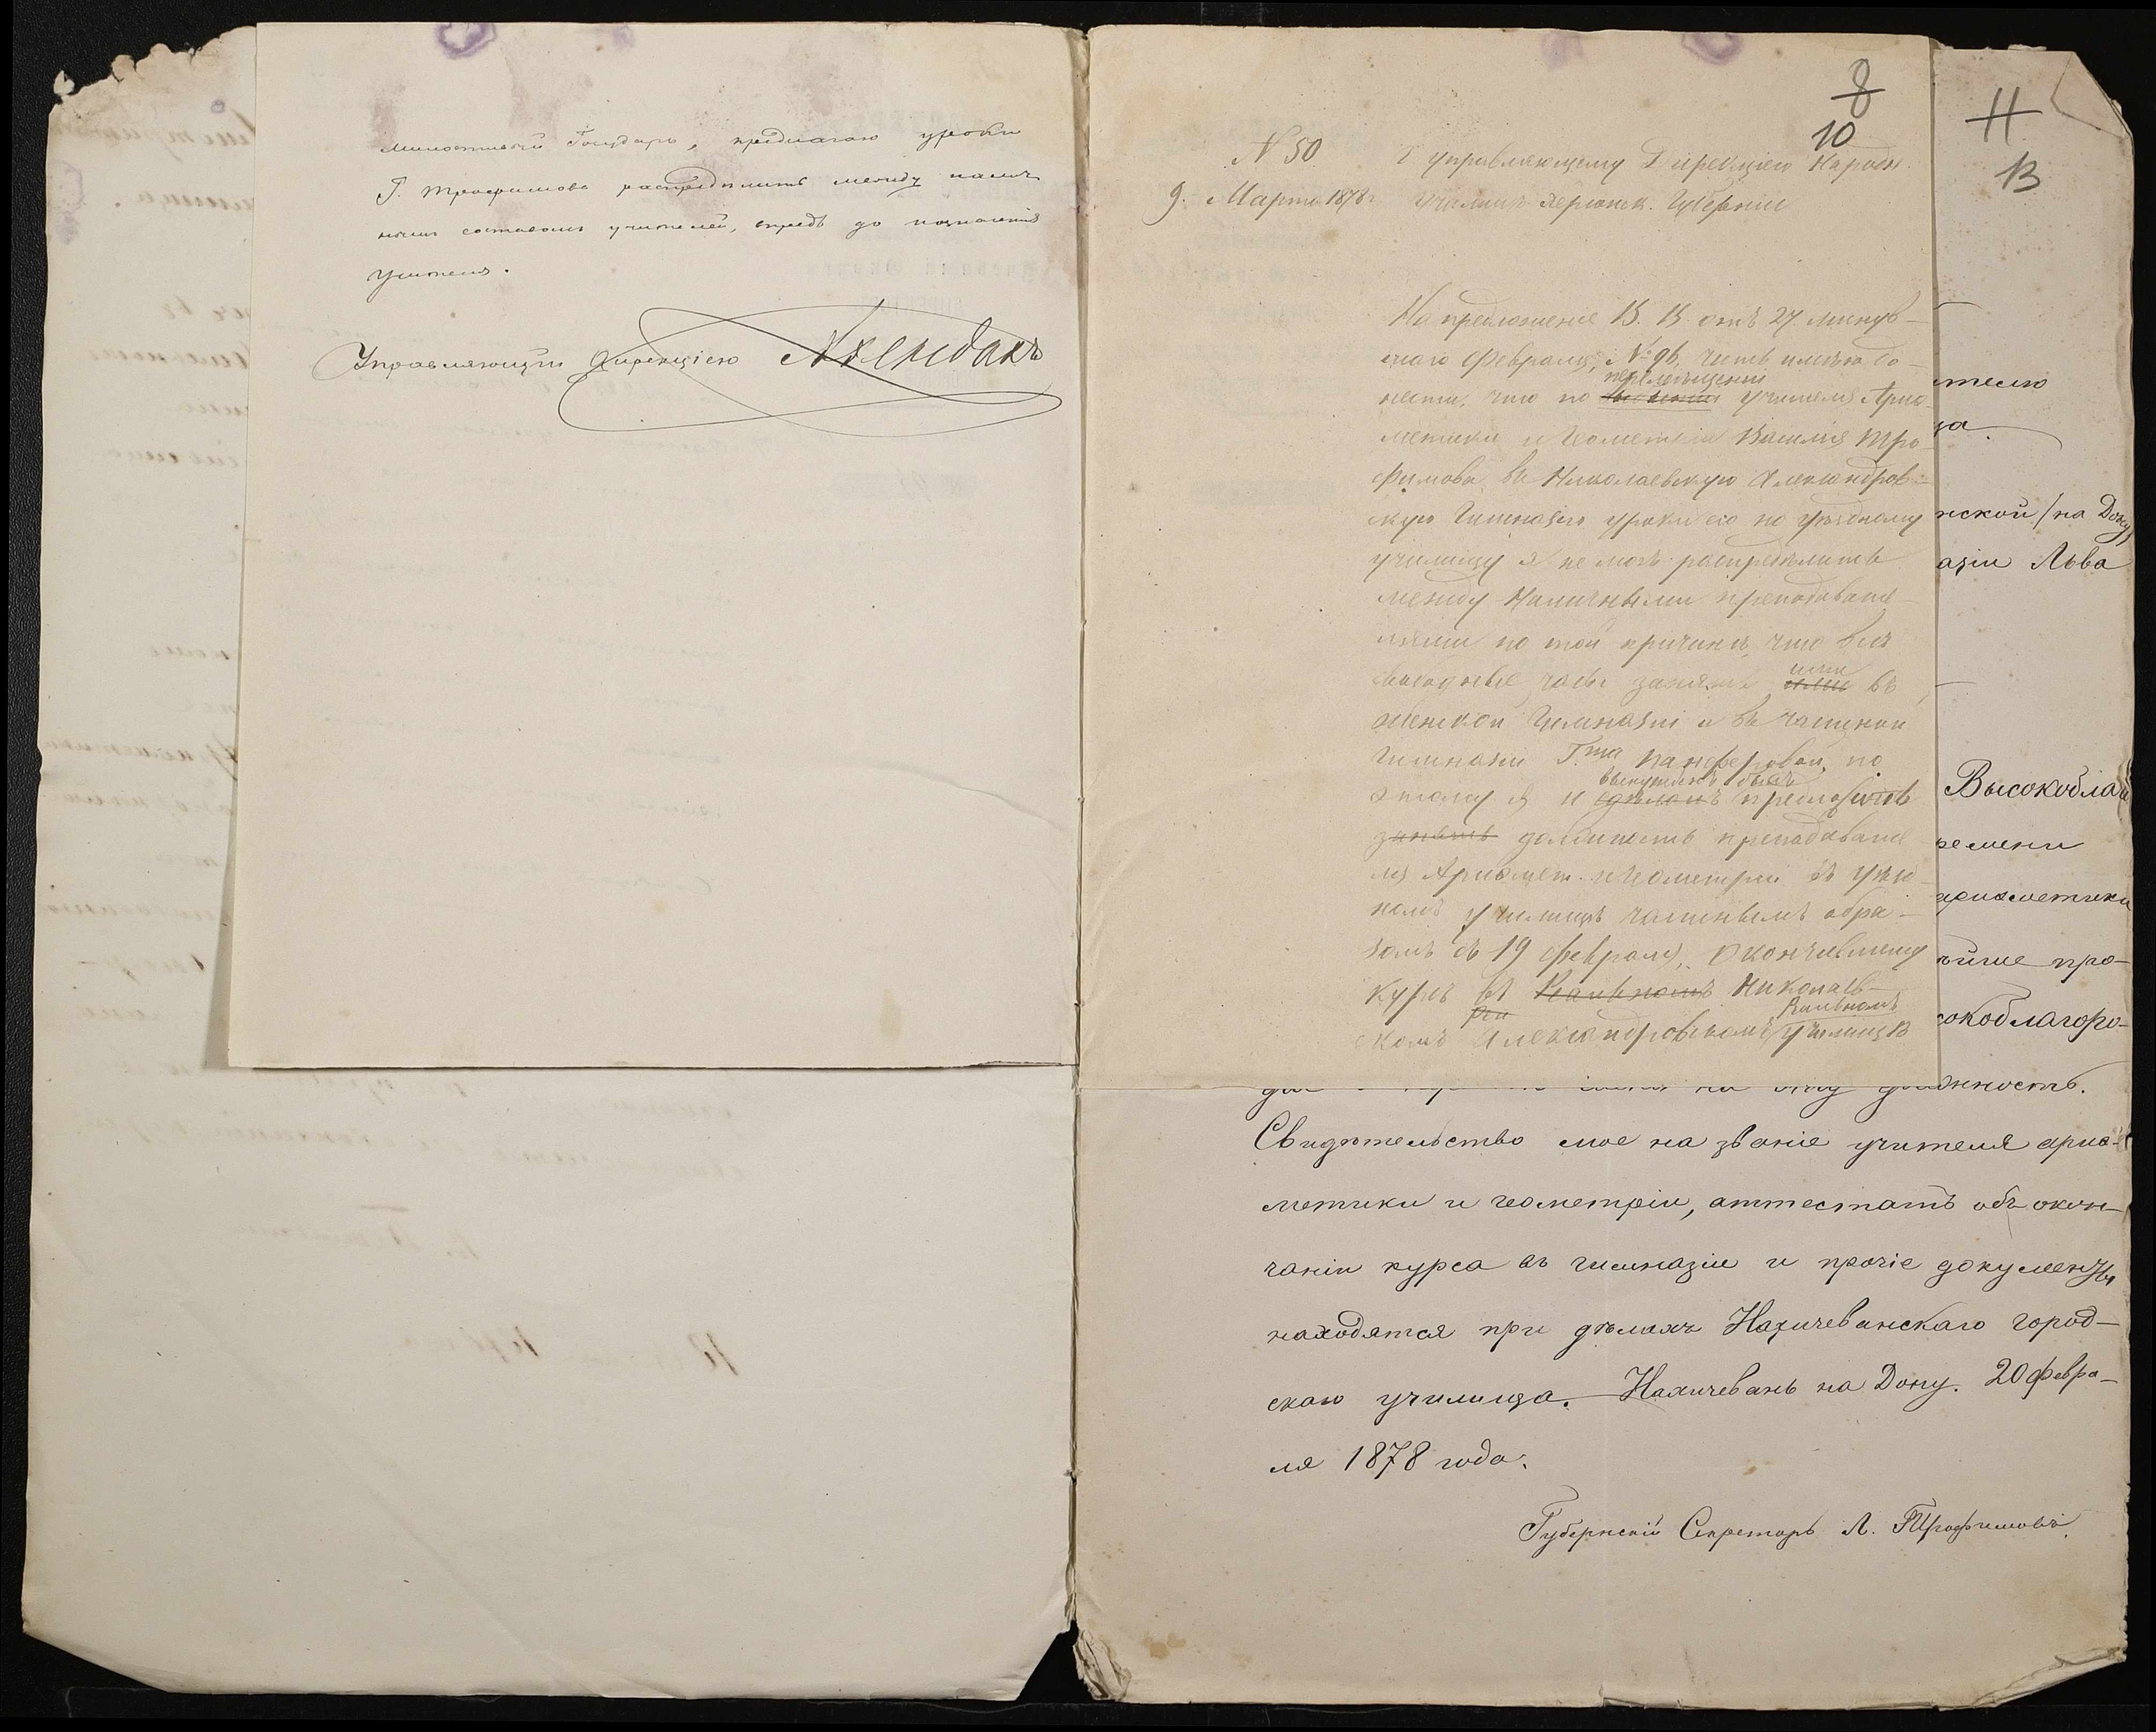 Милостивый Государь, предлагаю уроки
Г. Трофимова распредѣлить между налич
нымъ составомъ учителей, впредь до назначенія
учителя.
Управляющій Дирекціею
8
10
N 50
Управляющему Дирекціею Народн.
9. Марта 1878 г.
Училищъ Херсонск. Губерніи
На предложеніе В. В. отъ 27 минув-
шаго Февраля, № 96, честь имѣю до-
нести, что по перемѣщеніи учителя Арие-
метики и Геометріи Василія Тро
фимова въ Николаевскую Александров-
скую Гимназію уроки его по уѣздному
училищу я не могъ распредѣлить
между наличными преподавате-
лями по той причинѣ, что всѣ
свободные часы заняты ими въ
женской Гимназіи и въ частной
Гимназіи по
вынужденъ былъ
этому я и предложить
занять должность преподавате
ля Ариѳмет. и Геометріи въ уѣзд
номъ училищѣ частнымъ обра-
зомъ съ 19 февраля, окончившему
курсъ въ Реальномъ Николаев-
Реальномъ
скомъ Александровскомъ училищѣ
11
13
телю
ща.
нской /на Дону/
азіи Льва
Высокобла
ремени
ариѳметики
ѣйше про-
сокоблагоро-
на эту должность.
Свидѣтельство мое на званіе учителя ариѳ-
метики и геометріи, аттестатъ объ окон-
чаніи курса въ гимназіи и прочіе документы
находятся при дѣлахъ Нахичеванскаго город-
скаго училища. Нахичевань на Дону. 20 Февра-
ля 1878 года.
Губернскій Секретарь Л. Трофимовъ.